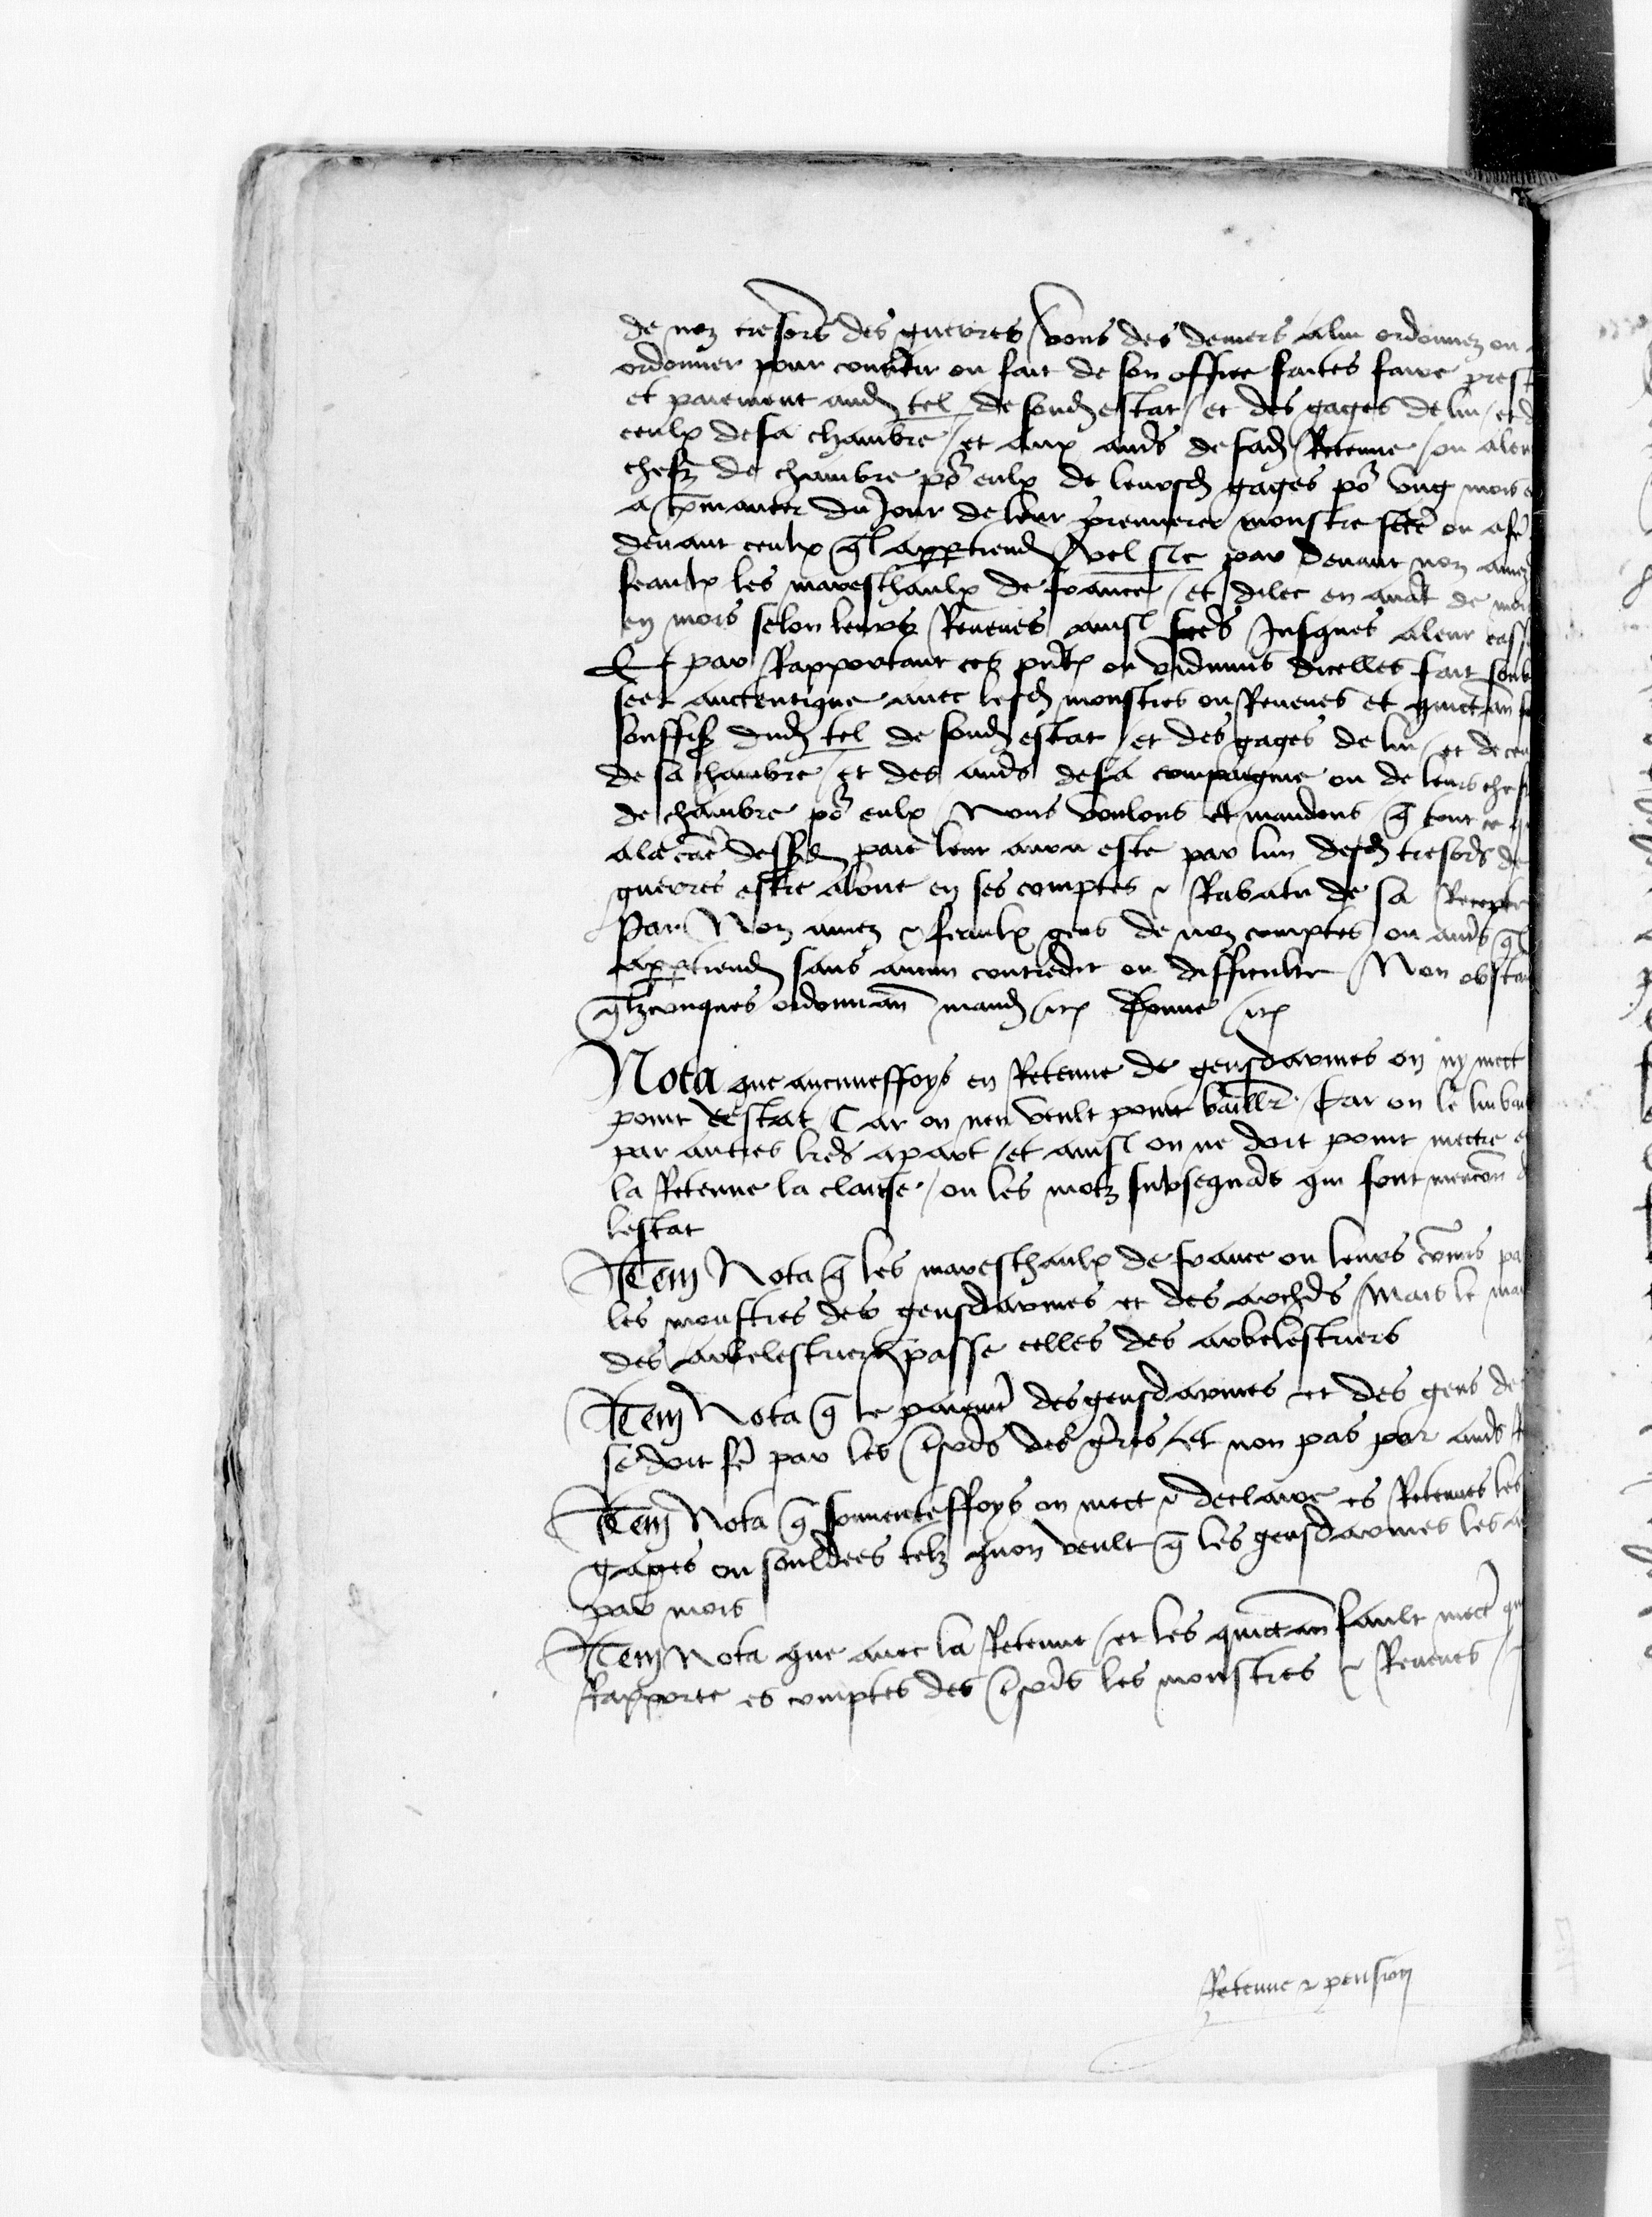 de noz tresors des guerres vous des deniers a lui ordonnez ou
ordonner pour convertir ou fait de son office faites faire prest
et paiement aud tel de sond estat / et des gages de lui / et d
ceulx de sa chambre / et aux auts de sad Retenue / ou a leur
chefz de chambre por eulx de leursd gages por ung mois
a commancer du Jour de leur premiere monstre fcte ou a fe
devant ceulx ql appertiend vel sic par devant noz amez
feaulx les mareschaulx de france / et dilec en avat de mois
en mois selon leurs Reveues ainsi fctes Jusques a leur cass
Et par Rapportant ces pntes ou vidimus dicelles fait soub
seel auctentique avec lesd monstres ou Reveues et quictan
souffis dud tel de sond estat / et des gages de lui / et de ceu
de sa chambre / et des auts de sa compaignie ou de leurs chefz
de chambre por eulx Nous voulons et mandons q tout ce q
a la cae dessd paie leur aura este par lun desd tresors de
guerres estre aloue en ses comptes & Rabatu de sa Recepte
Par Noz amez & feaulx gens de noz comptes ou auts ql
appertiend sans aucun contredit ou difficulte Non obstan
qlzconques ordonnan mand etc Donne etc
Nota que aucuneffoys en Retenue de gensdarmes on ny mect
point lestat Car on nen veult point baillr Car on le lui bail
par autres lres apart / et ainsi on ne doit point mectre en
la Retenue la clause / ou les motz subsequats qui font mencon d
lestat
Item Nota q les mareschaulx de france ou leurs comis pa
les monstres des gensdarmes et des archds Mais le mai
des arbelestriers passe celles des arbelestriers
Item Nota q le paiemt des gensdarmes et des gens de
se doit fe par les tsords des guerres / et non pas par auts
Item Nota q souventeffoys on mect & declaire es Retenues les
gages ou souldees telz quon veult q les gensdarmes les a
par mois
Item Nota que avec la Retenue / et les quictan fault mect
Rapporte es comptes des tsords les monstres & Reveues
Retenue & pension